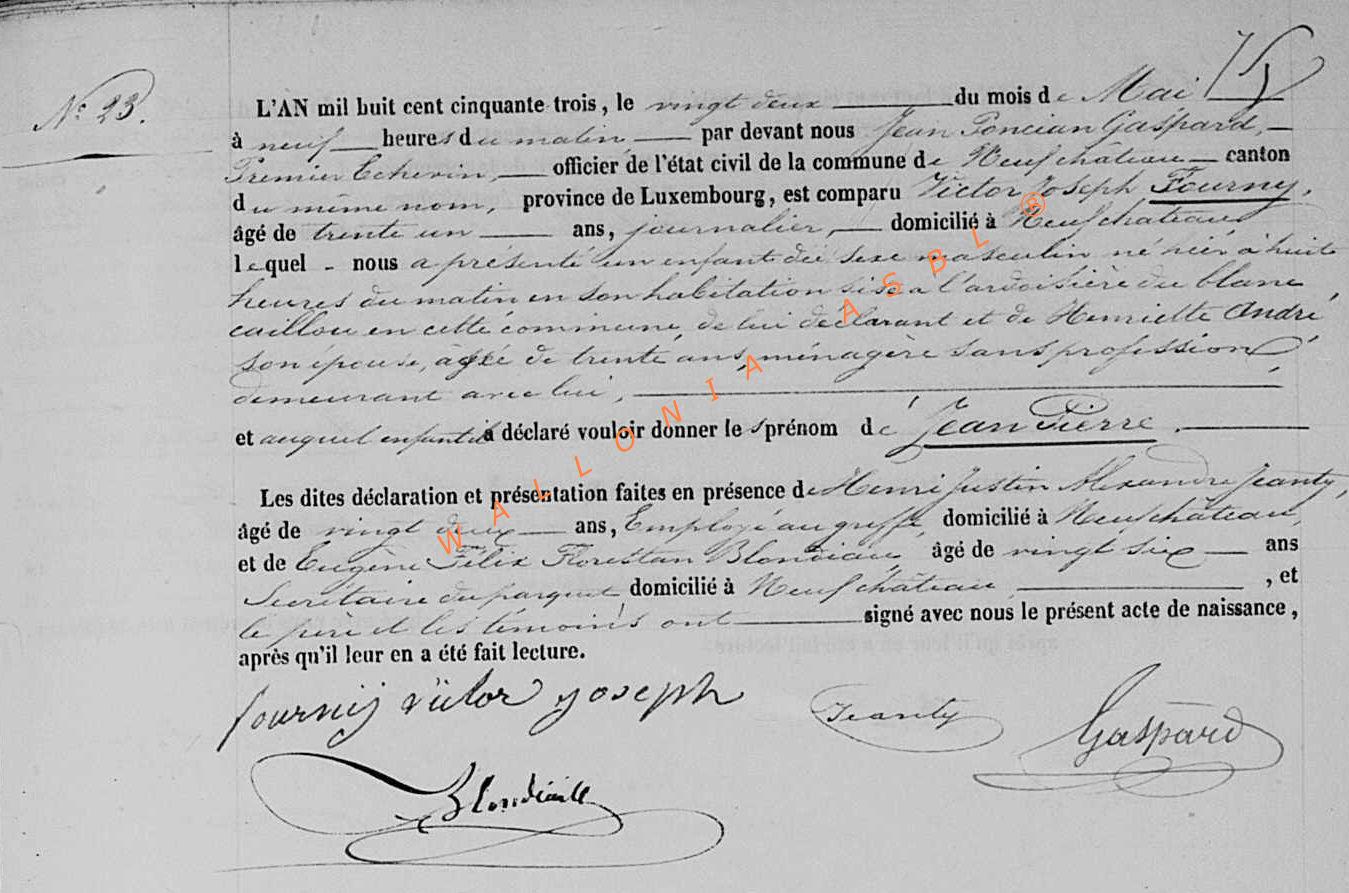 75
N° 23.
L'AN mil huit cent cinquante trois, le vingt deux du mois de Mai
à neuf heures du matin par devant nous Jean Poncian Gaspard,
Premier Echevin, officier de l'état civil de la commune de Neufchâteau canton
du même nom, province de Luxembourg, est comparu Victor Joseph Fourny,
âgé de trente un ans, journalier, domicilié à Neufchateau
lequel nous a présenté un enfant du sexe masculin né hier à huit
heures du matin en son habitation sise a l'ardoisière du blanc
caillou en cette commune, de lui déclarant et de Henriette André
son épouse, âgée de trente ans, ménagère sans profession,
demeurant avec lui,
et auquel enfant il a déclaré vouloir donner les prénom de Jean Pierre.
Les dites déclaration et présentation faites en présence de Henri Justin Alexandre Jeanty,
âgé de vingt deux ans, Employé au greffe domicilié à Neufchâteau,
et de Eugène Félix Florestan Blondiau, âgé de vingt six ans
Secrétaire du parquet domicilié à Neufchâteau, , et
le père et les témoins ont signé avec nous le présent acte de naissance,
après qu'il leur en a été fait lecture.
fourny victor joseph
Jeanty
Gaspard
WALLONIA ASBL ®